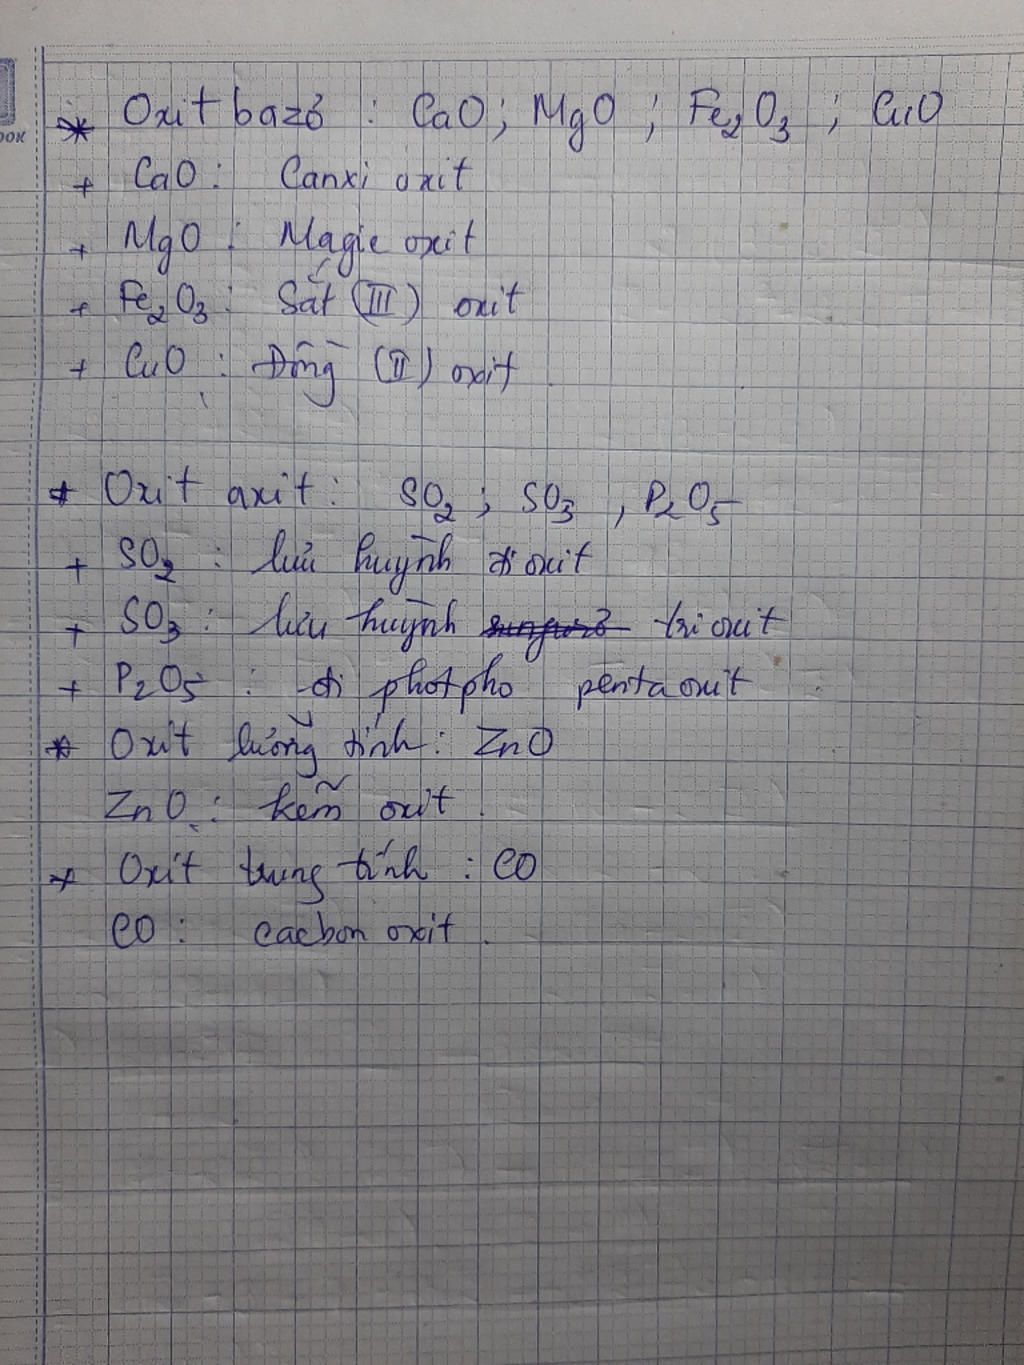 * Oxit bazơ : CaO ; MgO ; Fe₂O₃ ; CuO
+ CaO : Canxi oxit
+ MgO : Magie oxit
+ Fe₂O₃ : Sắt (III) oxit
+ CuO : Đồng (II) oxit
* Oxit axit : SO₂ ; SO₃ , P₂O₅
+ SO₂ : lưu huỳnh đi oxit
+ SO₃ : lưu huỳnh tri oxit
+ P₂O₅ : đi photpho penta oxit
* Oxit lưỡng tính : ZnO
ZnO : kẽm oxit .
* Oxit trung tính : CO
CO : cacbon oxit .